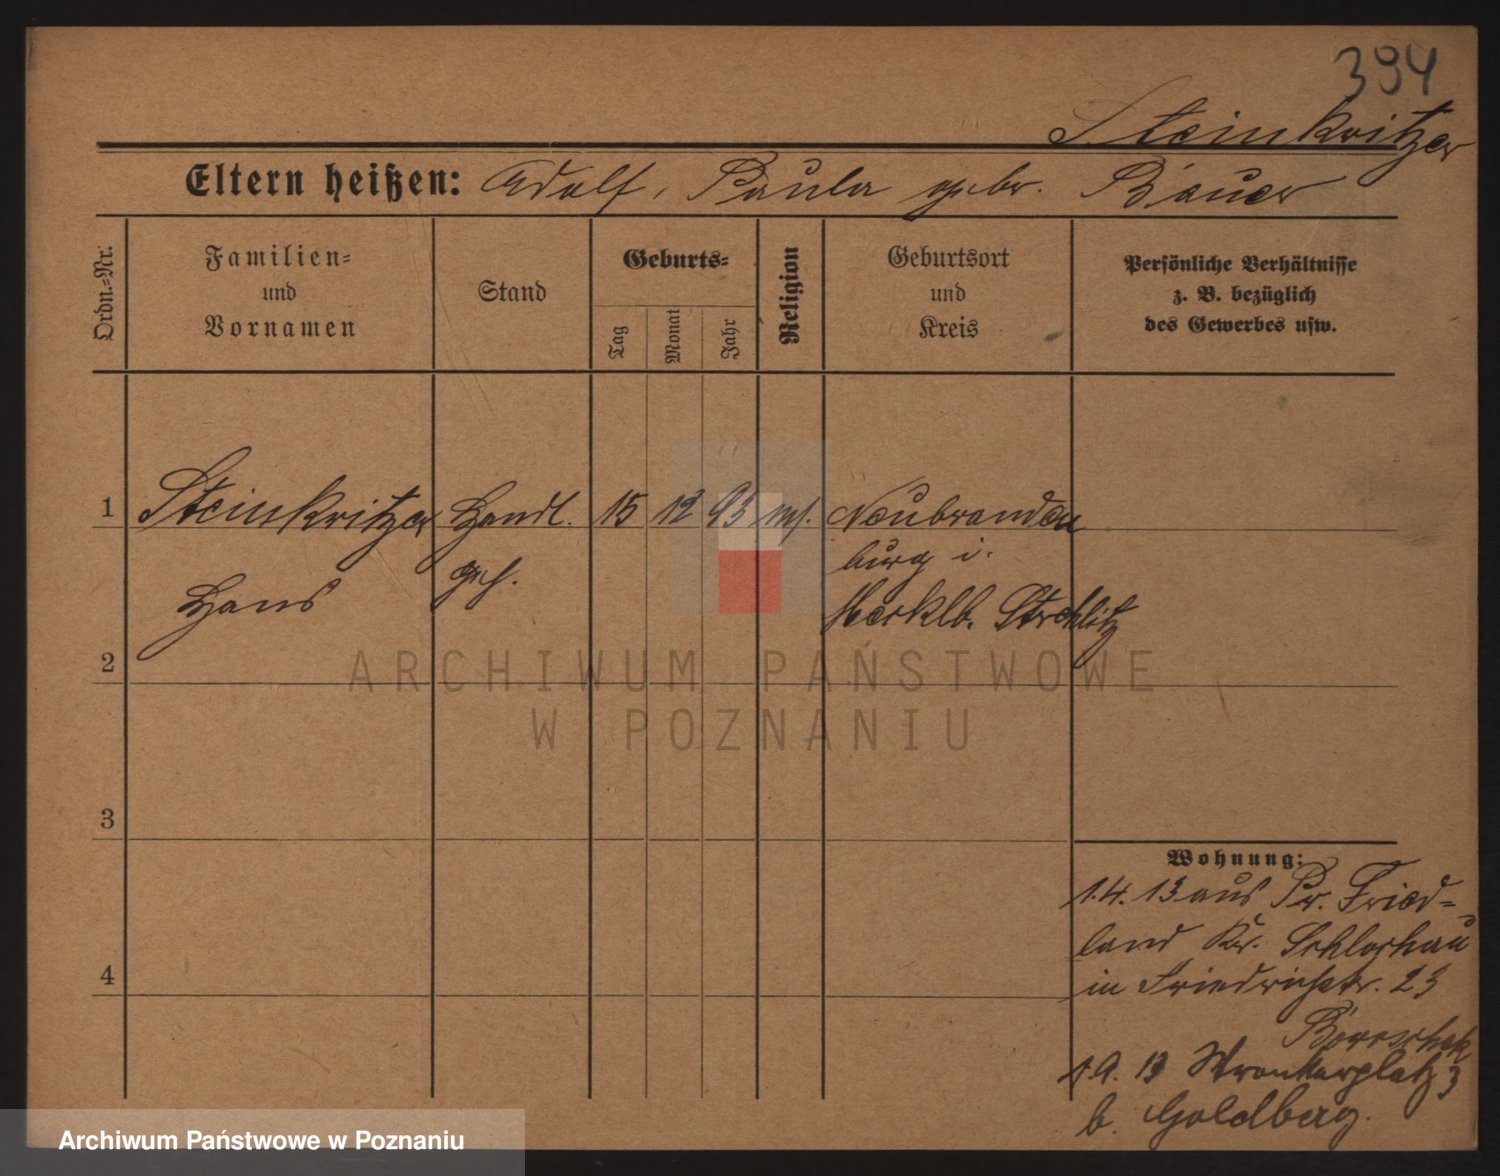 394
Steinkritzer
Eltern heißen: Adolf, Paula gebr. Bauer
Ordn.-Nr.
Familien-
und
Vornamen
Stand
Geburts-
Tag
Monat
Jahr
Religion
Geburtsort
und
Kreis
Persönliche Verhältnisse
z. B. bezüglich
des Gewerbes usw.
1 Steinkritzer Handl. 15 12 93 Neubranden
burg i.
geh.
Hans
Mecklb. Strehlitz
2
ARCHIWUM PAŃSTWOWE
W POZNANIU
3
Wohnung:
1.4. 13 aus Pr. Fried-
land Kr. Schlochau
4
in Friedrichstr. 23
1.9. 13 Wronkerplatz 3
b. Goldberg.
Archiwum Państwowe w Poznaniu